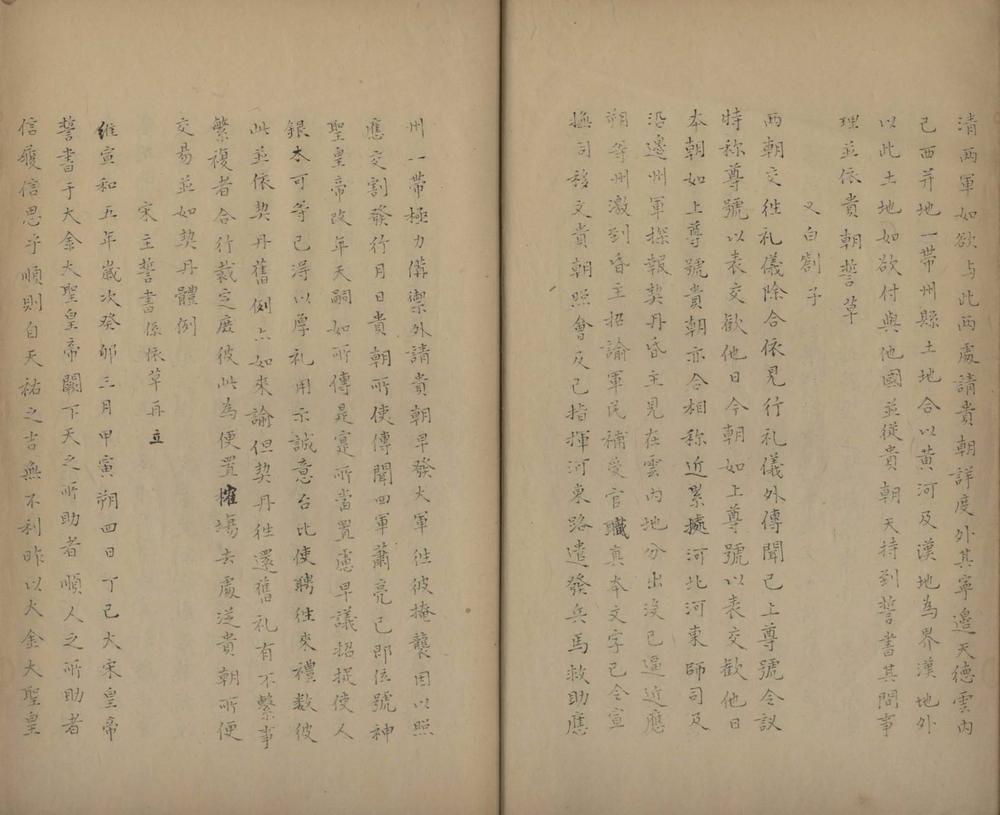 清两軍如欲与此两處請貴朝詳度外其寜邉天德雲内
已西并地一帶州縣土地合以黃河及漢地為界漢地外
以此土地如欲付與他國並従貴朝天持到誓書其間事
理並依貴朝誓草
又白劄子
两朝交徃礼儀除合依見行礼儀外傳聞已上尊號令議
時称尊號以表交歡他日今朝如上尊號以表交歡他日
本朝如上尊號貴朝亦合相称近累據河北河東師司及
沿邊州軍探報契丹昏主見在雲内地分出沒已逼近應
朔等州激到昏主招諭軍民補受官職真本文字已令宣
撫司移文貴朝照會及已指揮河東路遣發兵馬救助應
州一帶極力偹禦外請貴朝早發大軍徃彼掩襲因以照
應交割發行月日貴朝所使傳聞四軍蕭亮已即位號神
聖皇帝改年天嗣如所傳是寔所當置慮早議招捉使人
銀朮可等已淂以厚礼用示誠意台比使聘徃來禮数彼
此並依契丹舊例亦如來諭但契丹徃還舊礼有不繋事
繁複者合行裁定庶彼此為便置榷塲去處送貴朝所便
交易並如契丹體例
宋主誓書係依草再立
維宣和五年歲次癸卯三月甲寅朔四日丁已大宋皇帝
誓書于大金大聖皇帝闕下天之所助者順人之所助者
信履信思乎順則自天祐之吉無不利昨以大金大聖皇